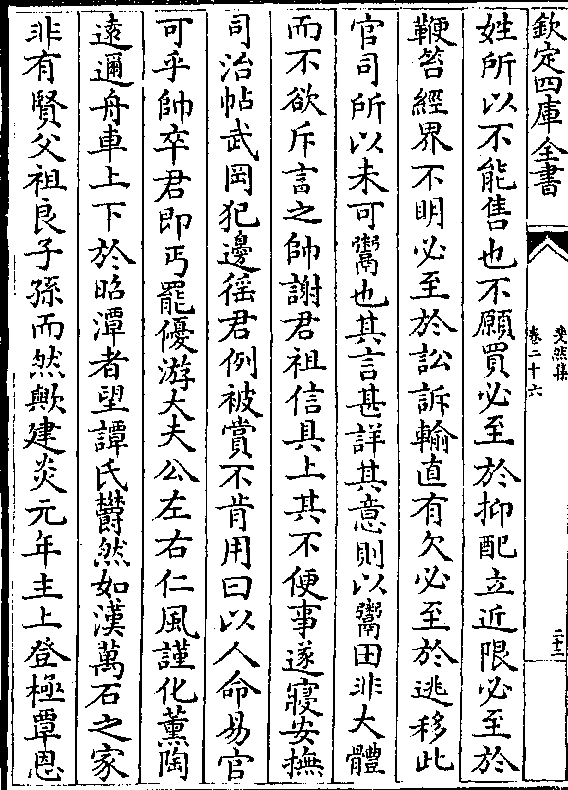 欽定四庫全書
斐然集
卷二十六
二十三
姓所以不能售也不願買必至於抑配立近限必至於
鞭笞經界不明必至於訟訴輸直有欠必至於逃移此
官司所以未可鬻也其言甚詳其意則以鬻田非大體
而不欲斥言之帥謝君祖信具上其不便事遂寢安撫
司治帖武岡犯邊徭君例被賞不肯用曰以人命易官
可乎帥卒君即丐罷優游大夫公左右仁風謹化薰陶
遠邇舟車上下於昭潭者望譚氏欝然如漢萬石之家
非有賢父祖良子孫而然歟建炎元年主上登極覃恩